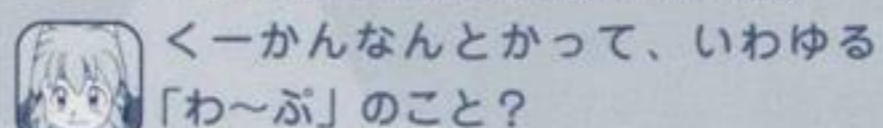 くーかんなんとかって、いわゆる
「わ〜ぷ」のこと？